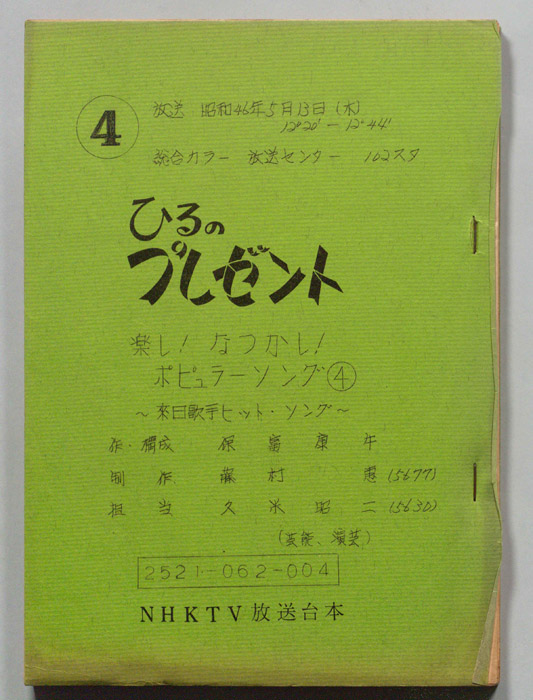 4
放送 昭和46年5月13日(木)
12°20' - 12°44'
総合カラー 放送センター 102スタ
ひるの
プレゼント
楽し!なつかし!
ポピュラーソング④
~来日歌手ヒット・ソング~
作・構成 保富康午
制作 藤村 恵(5677)
担当 久米昭二(5630)
(芸能、演芸)
2521-062-004
NHKTV放送台本